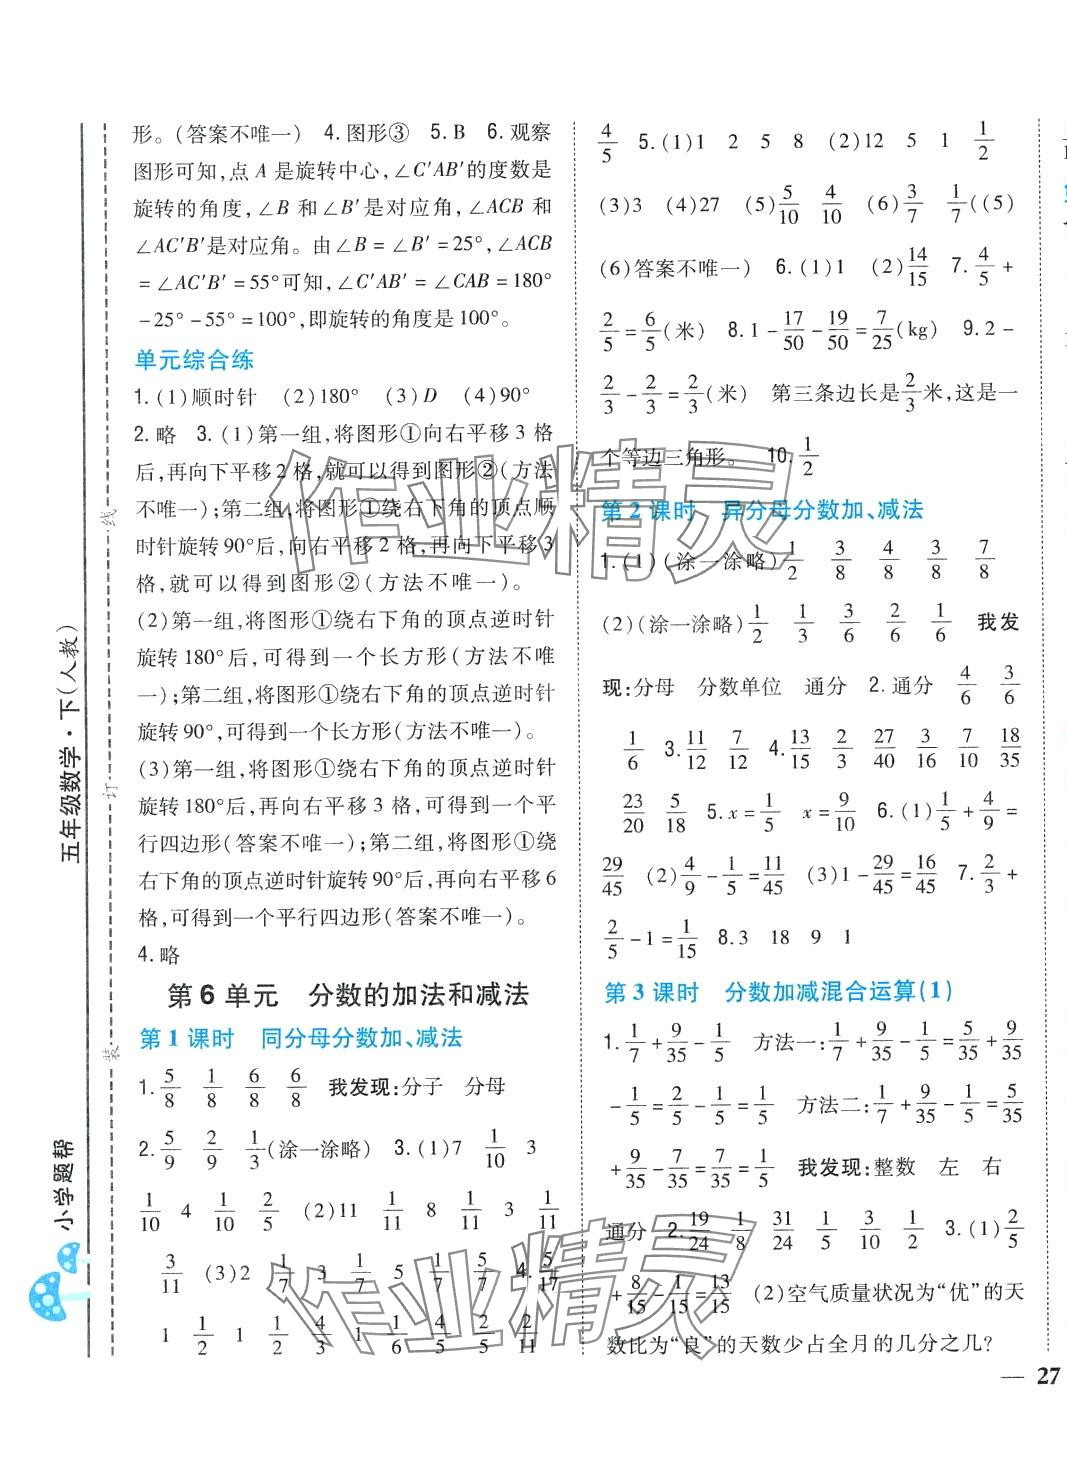 形。(答案不唯一) 4.图形③ 5.B 6.观察
图形可知,点 A 是旋转中心,∠C′AB′的度数是
旋转的角度,∠B 和∠B′是对应角,∠ACB 和
∠AC′B′是对应角。由∠B=∠B′=25°,∠ACB
=∠AC′B′=55°可知,∠C′AB′=∠CAB=180°
-25°-55°=100°,即旋转的角度是100°。
单元综合练
1.(1)顺时针 (2)180° (3)D (4)90°
2.略 3.(1)第一组,将图形①向右平移3格
后,再向下平移2格,就可以得到图形②(方法
不唯一);第二组,将图形①绕右下角的顶点顺
时针旋转90°后,向右平移2格,再向下平移3
格,就可以得到图形②(方法不唯一)。
(2)第一组,将图形①绕右下角的顶点逆时针
旋转180°后,可得到一个长方形(方法不唯
一);第二组,将图形①绕右下角的顶点逆时针
旋转90°,可得到一个长方形(方法不唯一)。
(3)第一组,将图形①绕右下角的顶点逆时针
旋转180°后,再向右平移3格,可得到一个平
行四边形(答案不唯一);第二组,将图形①绕
右下角的顶点逆时针旋转90°后,再向右平移6
格,可得到一个平行四边形(答案不唯一)。
4.略
第6单元 分数的加法和减法
第1课时 同分母分数加、减法
1. 5/8 1/8 6/8 6/8 我发现:分子 分母
2. 5/9 2/9 1/3(涂一涂略) 3.(1)7 1/10 3
1/10 4 1/10 2/5 (2)11 1/11 8 1/11 3 1/11
3/11 (3)2 1/7 3 1/7 5 1/7 5/7 4. 5/17
1 1/2 1 1/2 4/3 1 1/6 4/5 2/5 2/11
4/5 5.(1)1 2 5 8 (2)12 5 1 1/2
(3)3 (4)27 (5)5/10 4/10 (6)3/7 1/7((5)
(6)答案不唯一) 6.(1)1 (2)14/15 7. 4/5+
2/5=6/5(米) 8. 1-17/50-19/50=7/25(kg) 9. 2-
2/3-2/3=2/3(米) 第三条边长是2/3米,这是一
个等边三角形。 10. 1/2
第2课时 异分母分数加、减法
1.(1)(涂一涂略)1/2 3/8 4/8 3/8 7/8
(2)(涂一涂略)1/2 1/3 3/6 2/6 1/6 我发
现:分母 分数单位 通分 2.通分 4/6 3/6
1/6 3. 11/12 7/12 4. 13/15 2/3 27/40 3/16 7/10 18/35
23/20 5/18 5. x=1/5 x=9/10 6.(1)1/5+4/9=
29/45 (2)4/9-1/5=11/45 (3)1-29/45=16/45 7. 2/3+
2/5-1=1/15 8.3 18 9 1
第3课时 分数加减混合运算(1)
1. 1/7+9/35-1/5 方法一:1/7+9/35-1/5=5/35+9/35
-1/5=2/5-1/5=1/5 方法二:1/7+9/35-1/5=5/35
+9/35-7/35=7/35=1/5 我发现:整数 左 右
通分 2. 19/24 1/8 31/24 1/5 3/10 1/2 3.(1)2/5
+8/15-1/15=13/15 (2)空气质量状况为“优”的天
数比为“良”的天数少占全月的几分之几?
— 27
小学题帮
五年级数学·下(人教)
装
订
线
作业精灵
作业精灵